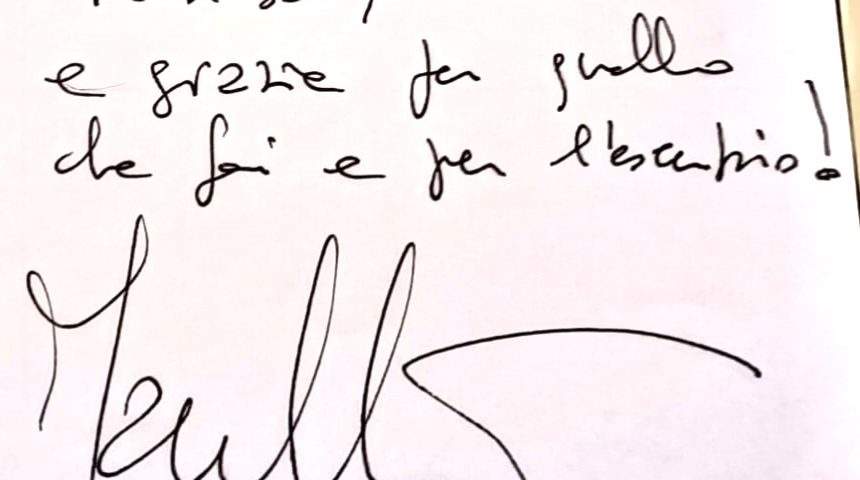 e grazie per quello
che fai e per l'esempio!